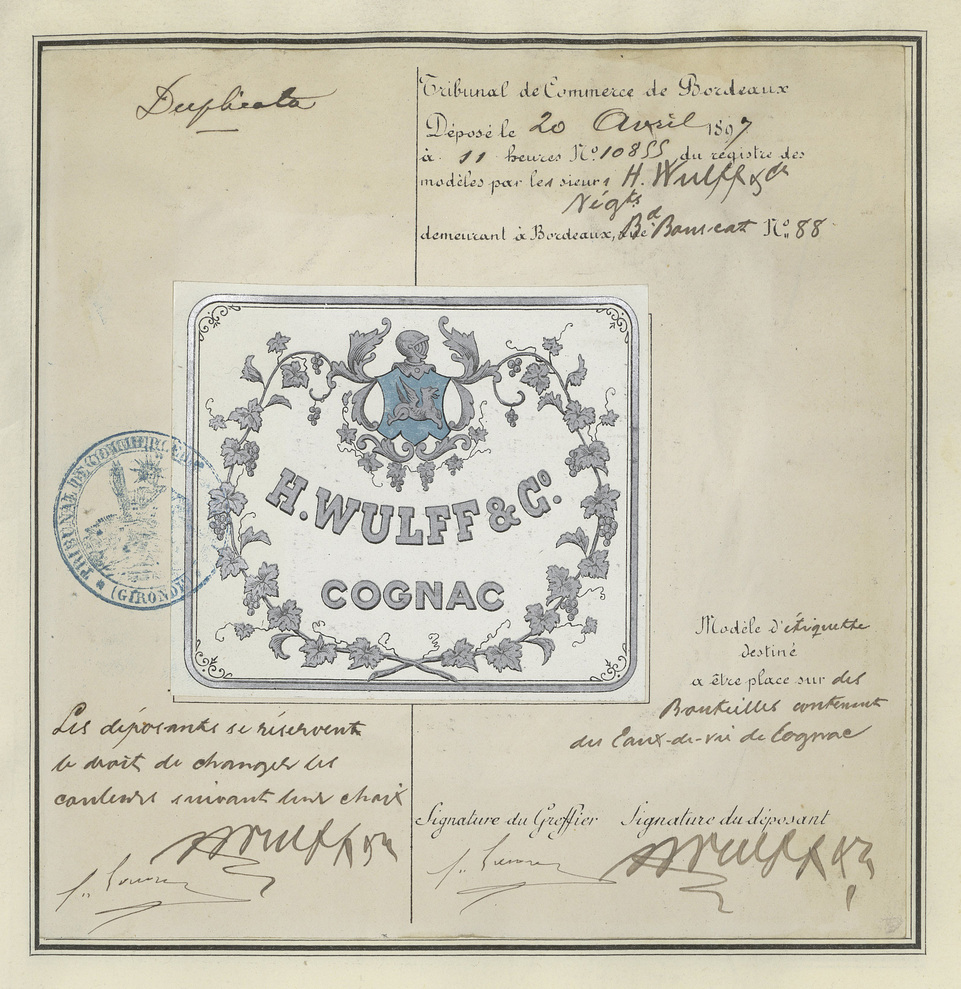 Duplicata
Tribunal de Commerce de Bordeaux
Déposé le 20 Avril 1897
à 11 heures N° 10855 du registre des
modèles par les sieurs H. Wulff & Co
Négts
demeurant à Bordeaux, Bd N° 88
H. WULFF & Co.
COGNAC
TRIBUNAL DE COMMERCE DE
(GIRONDE)
Modèle d'étiquette
destiné
a être place sur des
Bouteilles contenant
des Eaux-de-vie de Cognac
Les déposants se réservent
le droit de changer les
couleurs suivant leur choix
Signature du Greffier Signature du déposant
H Wulff & Co
H Wulff & Co